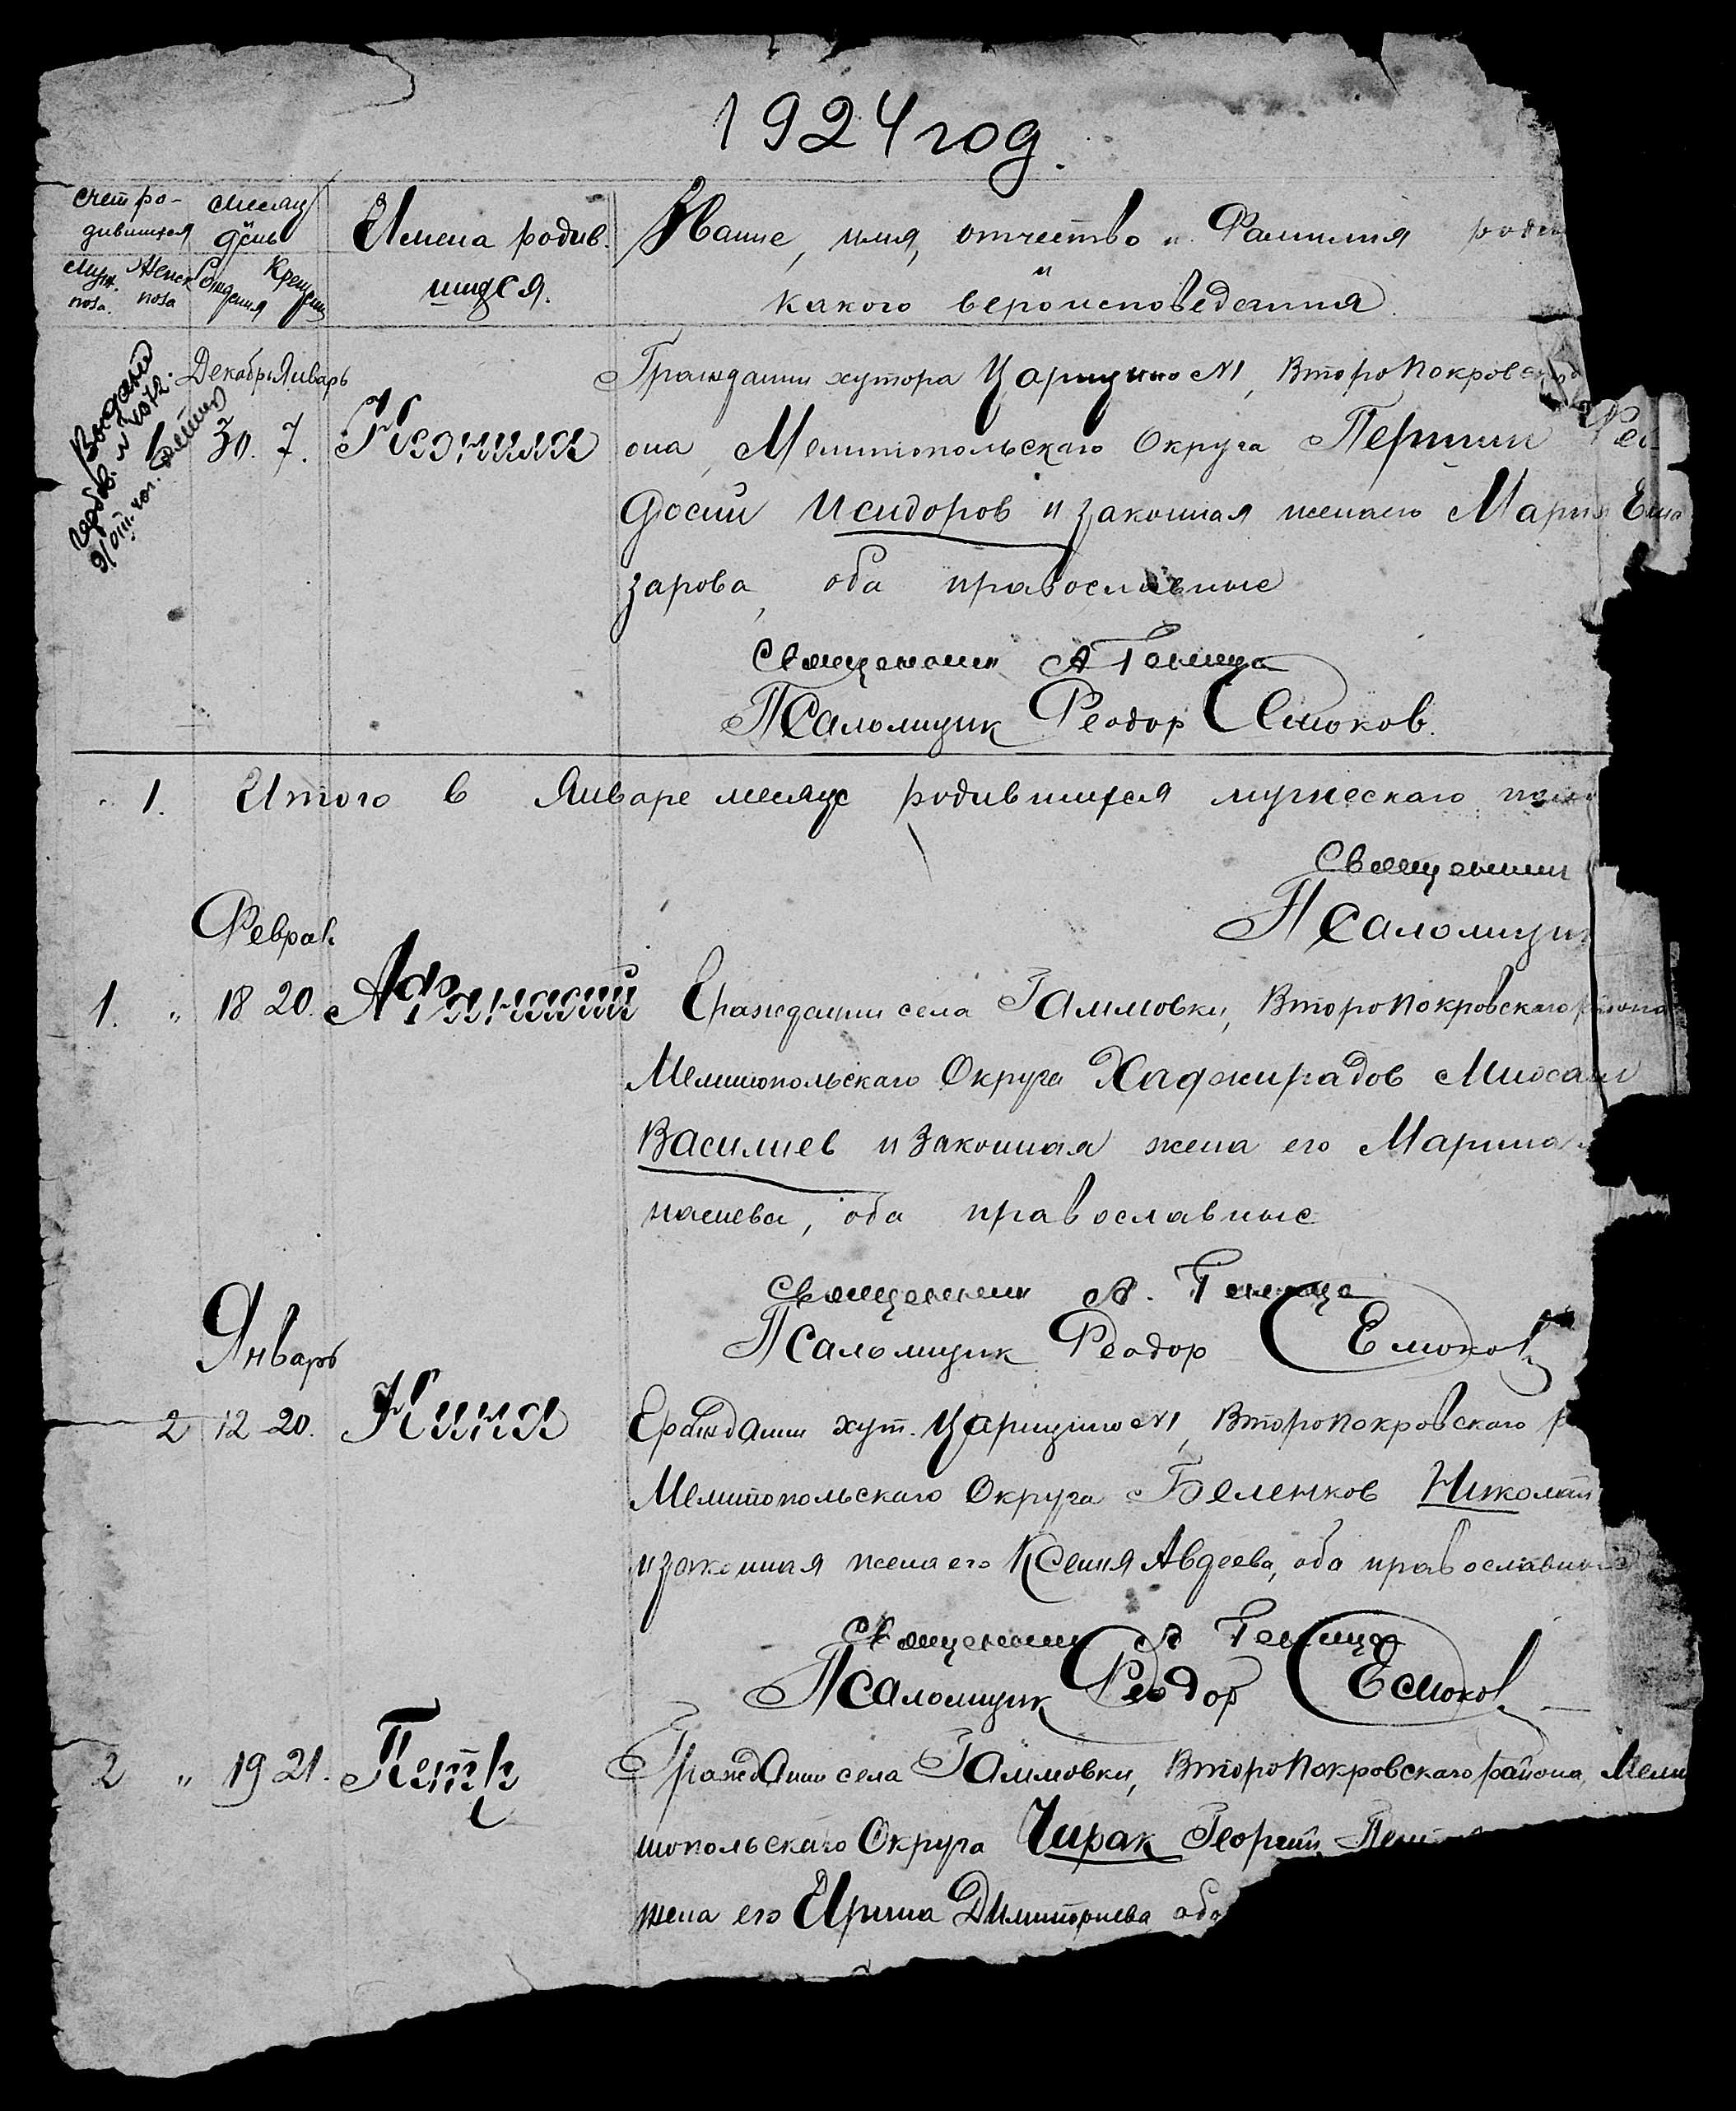 1924 год.
Счет ро- Месяц
дившихся день Имена родив. Звание, имя, отчество и Фамилия
Муж. Женск Рождения Крещения шихся. и
пола. пола какого вероисповедания.
Декабрь Январь Гражданин хутора Царицыно №1, Второпокровского
1 30. 7. она, Мелитопольскаго Округа Першин Фео-
досий Исидоров и законная жена его Мария Елиа
зарова, оба православные
Священник А Геница
Псаломщик Феодор Есюков.
1. Итого в Январе месяце родившихся мужескаго пола
Священник
Псаломщик
Феврал.
1. " 18 20. Афанасий Гражданин села Гаммовки, Второпокровского района
Мелитопольскаго Округа Хаджирадов Михаил
Василиев и законная жена его Марина
насиева, оба православные
Священник А.
Псаломщик Феодор Есюков
Январь
2 12 20. Нина Гражданин хут. Царицыно №1, Второпокровского р
Мелитопольскаго Округа Беленков Николай
и законная жена его Ксения Авдеева, оба православные
Священник А
Псаломщик Феодор Есюков
2 " 19 21. Петр Гражданин села Гаммовки, Второпокровскаго района, Мели
топольскаго Округа Чирак Георгий
жена его Ирина Димитриева оба